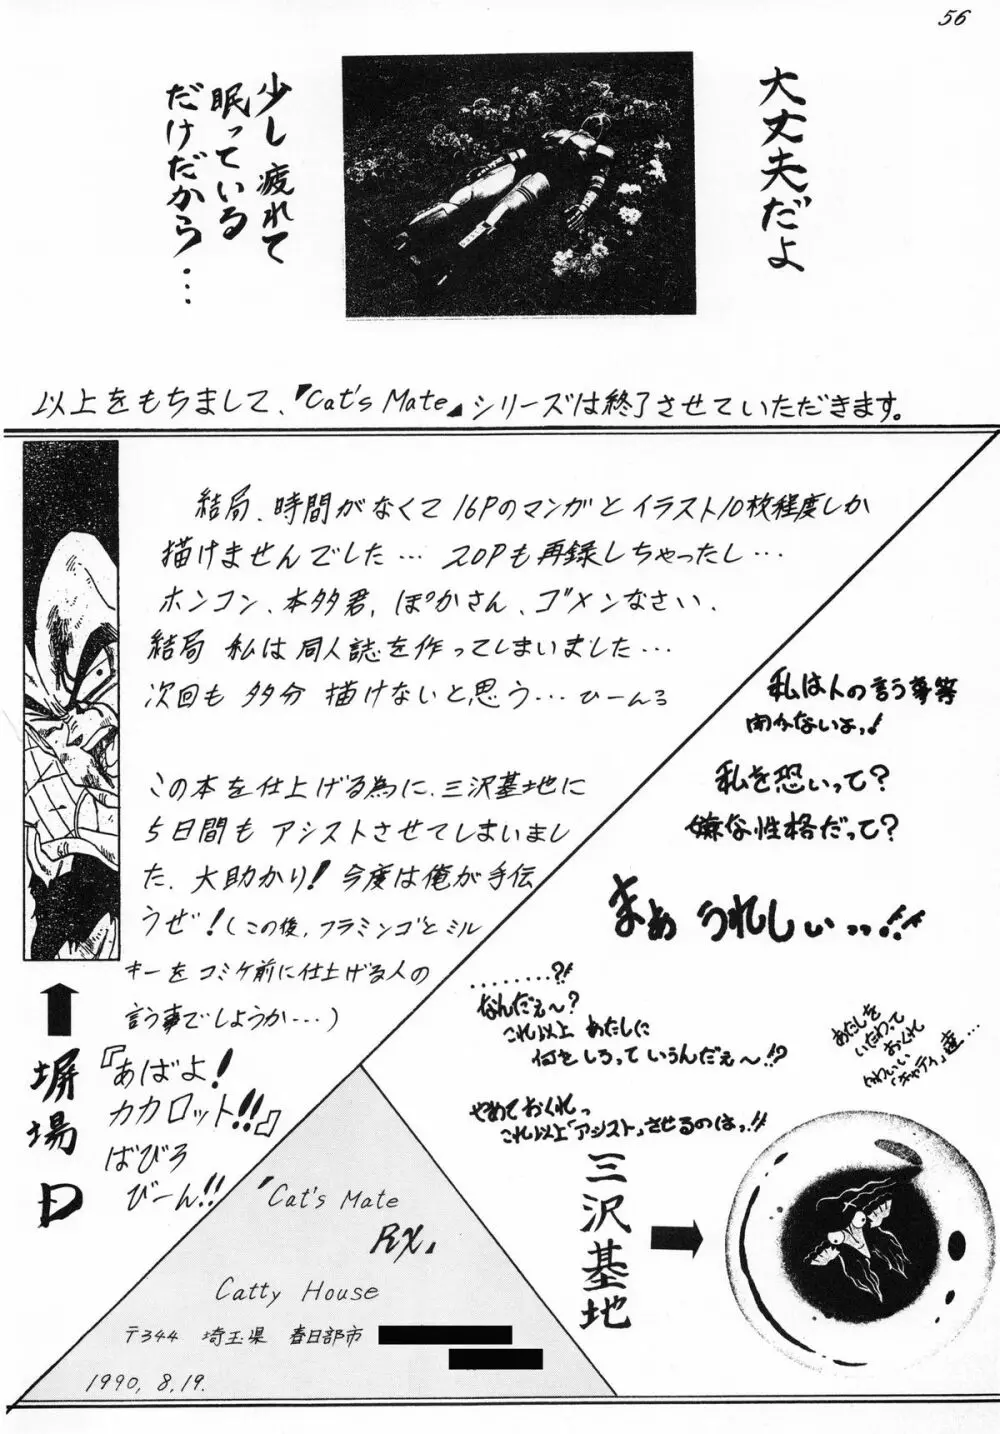 56
大丈夫だよ
少し疲れて
眠っている
だけだから・・・
以上をもちまして、『Cat's Mate』シリーズは終了させていただきます。
結局、時間がなくて16Pのマンガとイラスト10枚程度しか
描けませんでした… 20Pも再録しちゃったし…
ホンコン、本多君、ぽかさん、ゴメンなさい、
結局 私は同人誌を作ってしまいました…
次回も 多分 描けないと思う… ひーんろ
この本を仕上げる為に、三沢基地に
5日間もアシストさせてしまいまし
た、大助かり！今度は俺が手伝
うぜ！（この後、フラミンゴとミル
キーをコミケ前に仕上げる人の
言う事でしょうか…）
『あばよ！
カカロット!!』
ばびろ
びーん!!
塀場D
私は人の言う事等
聞かないよっ!
私を恐いって?
嫌な性格だって?
まぁ うれしぃっ!!
........?!
なんだぇ〜?
これ以上 あたしに
何をしろって いうんだぇ〜!?
やめておくれっ
これ以上「アシスト」させるのはっ!!
あたしを
いたわって
おくれ
かわいい
「キャティ」達…
三沢基地
「Cat's Mate
RX」
Catty House
〒344 埼玉県 春日部市
1990, 8, 19.